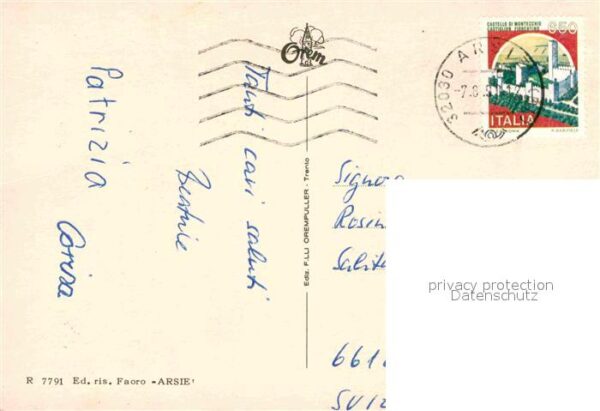 Orem
CASTELLO DI MONTECCHIO
CASTIGLION FIORENTINO
650
ITALIA
32030
Tanti cari saluti
Beatrice
Patrizia
Ediz. F.LLI OREMPULLER - Trento
Signora
Rosin
Salit
661
SVIZ
privacy protection
Datenschutz
R 7791 Ed. ris. Faoro - ARSIE'